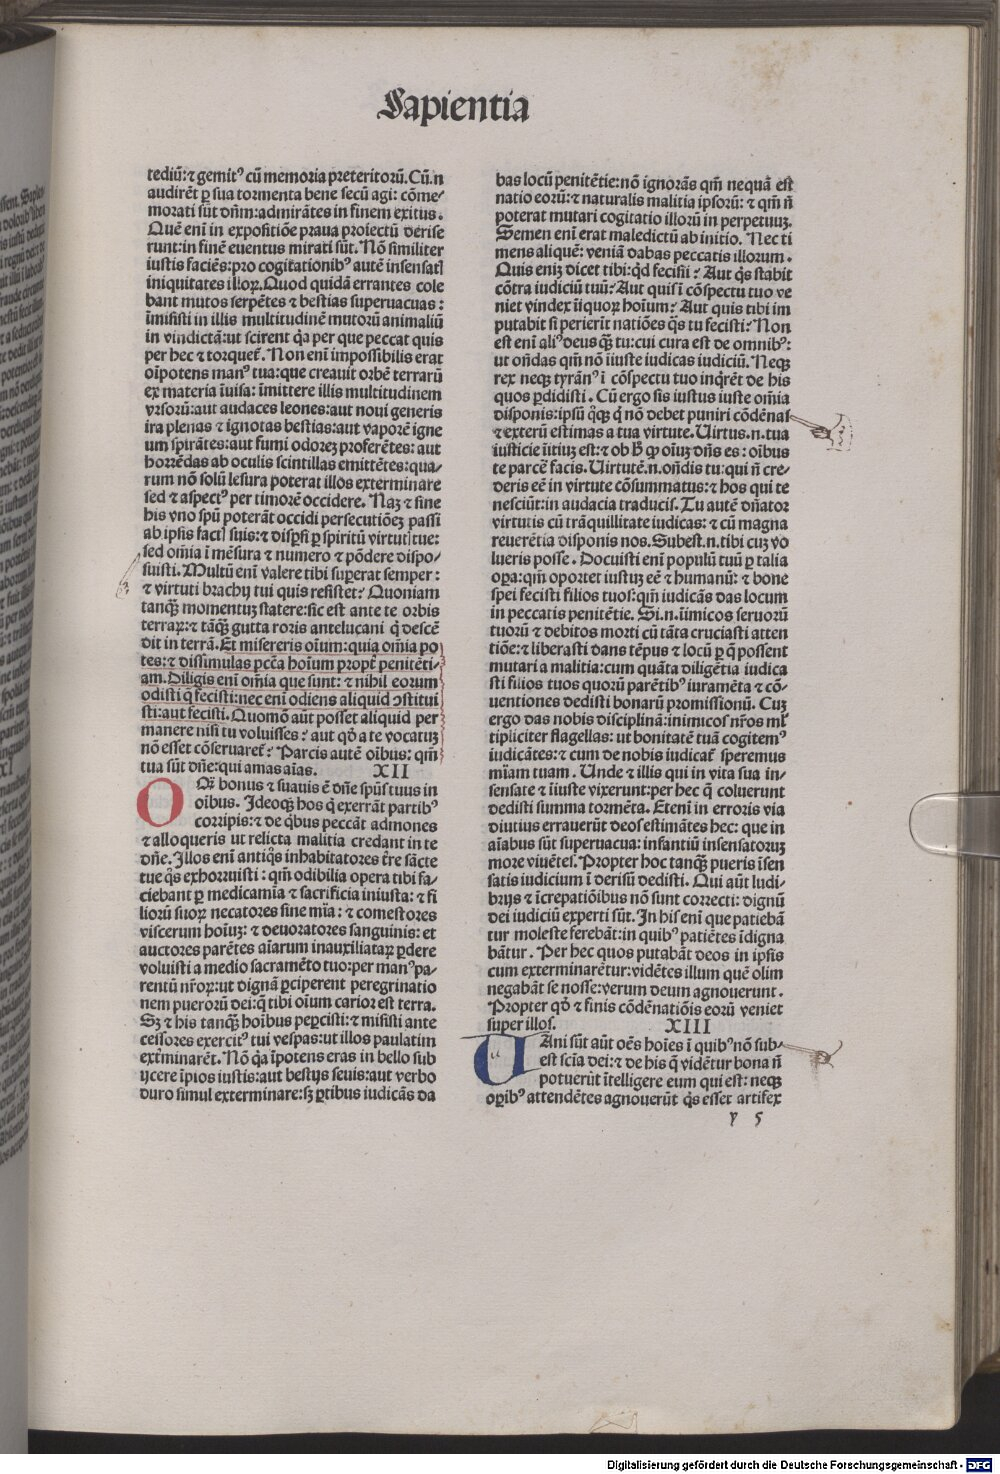 Sapientia
tediū: ⁊ gemitꝰ cū memoria preteritorū. Cū.n
audirēt ꝑ sua tormenta bene secū agi: cōme⸗
morati sūt dn̄m: admirātes in finem exitus.
Quē eni in expositiōe praua proiectū derise
runt: in finē euentus mirati sūt. Nō similiter
iustis faciēs: pro cogitationibꝰ autē insensatꝭ
iniquitates illoꝝ. Quod quidā errantes cole
bant mutos serpētes ⁊ bestias superuacuas:
īmisisti in illis multitudinē mutorū animaliū
in vindictā: ut scirent qa per que peccat quis
per hec ⁊ torquet̄. Non enī impossibilis erat
oīpotens manꝰ tua: que creauit orbē terrarū
ex materia īuisa: īmittere illis multitudinem
vrsorū: aut audaces leones: aut noui generis
ira plenas ⁊ ignotas bestias: aut vaporē igne
um spirātes: aut fumi odoreꝫ proferētes: aut
horrēdas ab oculis scintillas emittētes: qua⸗
rum nō solū lesura poterat illos exterminare
sed ⁊ aspectꝰ per timorē occidere. Naꝫ ⁊ sine
his vno spū poterāt occidi persecutiōeꝫ passi
ab ipsis factꝭ suis: ⁊ disꝑsi ꝑ spiritū virtutꝭ tue:
sed om̄ia ī mēsura ⁊ numero ⁊ pōdere dispo⸗
suisti. Multū enī valere tibi suꝑerat semper:
⁊ virtuti brachij tui quis resistet? Quoniam
tanqꝫ momentuꝫ statere: sic est ante te orbis
terraꝝ: ⁊ tāqꝫ gutta roris antelucani q̄ descē
dit in terrā. Et misereris oīum: quia om̄ia po
tes: ⁊ dissimulas pctā hoīum propt̄ penitēti⸗
am. Diligis enī om̄ia que sunt: ⁊ nihil eorum
odisti q̄ fecisti: nec enī odiens aliquid ↄstitui
sti: aut fecisti. Quomō aūt posset aliquid per
manere nisi tu voluisses? aut qd̓ a te vocatuꝫ
nō esset cōseruaret̄? Parcis autē oībus: qm̄
tua sūt dn̄e: qui amas aīas. XII
OQꝫ bonus ⁊ suauis ē dn̄e spūs tuus in
oībus. Ideoqꝫ hos q̄ exerrāt partibꝰ
corripis: ⁊ de qbus peccāt admones
⁊ alloqueris ut relicta malitia credant in te
dn̄e. Illos enī antiqs inhabitatores t̄re sācte
tue qs exhorruisti: qm̄ odibilia opera tibi fa⸗
ciebant ꝑ medicamīa ⁊ sacrificia iniusta: ⁊ fi
liorū suoꝝ necatores sine mīa: ⁊ comestores
viscerum hoīuꝫ: ⁊ deuoratores sanguinis: et
auctores parētes aīarum inauxiliataꝝ ꝑdere
voluisti a medio sacramēto tuo: per manꝰ pa⸗
rentū nr̄oꝝ: ut dignā ꝑciperent peregrinatio
nem puerorū dei: q̄ tibi oīum carior est terra.
Sꝫ ⁊ his tanqꝫ hoībus peꝑcisti: ⁊ misisti ante
cessores exercitꝰ tui vespas: ut illos paulatim
ext̄minarēt. Nō qa īpotens eras in bello sub
ijcere īpios iustis: aut bestijs seuis: aut verbo
duro simul exterminare: sꝫ ꝑtibus iudicās da
bas locū penitētie: nō ignorās qm̄ nequā est
natio eorū: ⁊ naturalis malitia ipsorū: ⁊ qm̄ n̄
poterat mutari cogitatio illorū in perpetuuꝫ.
Semen enī erat maledictū ab initio. Nec ti
mens aliquē: veniā dabas peccatis illorum.
Quis eniꝫ dicet tibi: qd fecisti? Aut qs stabit
cōtra iudiciū tuū? Aut quis ī cōspectu tuo ve
niet vindex īiquoꝝ hoīum? Aut quis tibi im
putabit si perierīt natiōes qs tu fecisti? Non
est enī aliꝰ deus qꝫ tu: cui cura est de omnibꝰ:
ut on̄das qm̄ nō iiuste iudicas iudiciū. Neqꝫ
rex neqꝫ tyrānꝰ ī cōspectu tuo inqrēt de his
quos ꝑdidisti. Cū ergo sis iustus iuste om̄ia
disponis: ipsū qꝫ q̄ nō debet puniri cōdēnas
⁊ exterū estimas a tua virtute. Uirtus.n. tua
iusticie īitiuꝫ est: ⁊ ob h̓ ꝙ oīuꝫ dn̄s es: oībus
te parcē facis. Uirtutē.n. on̄dis tu: qui n̄ cre⸗
deris eē in virtute cōsummatus: ⁊ hos qui te
nesciūt: in audacia traducis. Tu autē dn̄ator
virtutis cū trāquillitate iudicas: ⁊ cū magna
reuerētia disponis nos. Subest.n. tibi cuꝫ vo
lueris posse. Docuisti enī populū tuū ꝑ talia
oꝑa: qm̄ oportet iustuꝫ eē ⁊ humanū: ⁊ bone
spei fecisti filios tuos: qm̄ iudicās das locum
in peccatis penitētie. Si.n. īimicos seruorū
tuorū ⁊ debitos morti cū tāta cruciasti atten
tiōe: ⁊ liberasti dans tēpus ⁊ locū ꝑ q̄ possent
mutari a malitia: cum quāta diligētia iudica
sti filios tuos quorū parētibꝰ iuramēta ⁊ cō⸗
uentiones dedisti bonarū promissionū. Cuꝫ
ergo das nobis disciplinā: inimicos nr̄os ml̓
tipliciter flagellas: ut bonitatē tuā cogitemꝰ
iudicātes: ⁊ cum de nobis iudicat̄ speremus
mīam tuam. Unde ⁊ illis qui in vita sua in⸗
sensate ⁊ iiuste vixerunt: per hec q̄ coluerunt
dedisti summa tormēta. Etenī in erroris via
diutius errauerūt deos estimātes hec: que in
aīabus sūt superuacua: infantiū insensatoruꝫ
more viuētes. Propter hoc tanqꝫ pueris īsen
satis iudicium ī derisū dedisti. Qui aūt ludi⸗
brijs ⁊ īcrepatiōibus nō sunt correcti: dignū
dei iudiciū experti sūt. In his enī que patiebā
tur moleste ferebāt: in quibꝰ patiētes īdigna
bātur. Per hec quos putabāt deos in ipsis
cum exterminarētur: vidētes illum quē olim
negabāt se nosse: verum deum agnouerunt.
Propter qd̓ ⁊ finis cōdēnatiōis eorū veniet
super illos. XIII
UAni sūt aūt oēs hoīes ī quibꝰ nō sub⸗
est scīa dei: ⁊ de his q̄ vidētur bona n̄
potuerūt ītelligere eum qui est: neqꝫ
oꝑibꝰ attendētes agnouerūt qs esset artifex
y 5
Digitalisierung gefördert durch die Deutsche Forschungsgemeinschaft - DFG